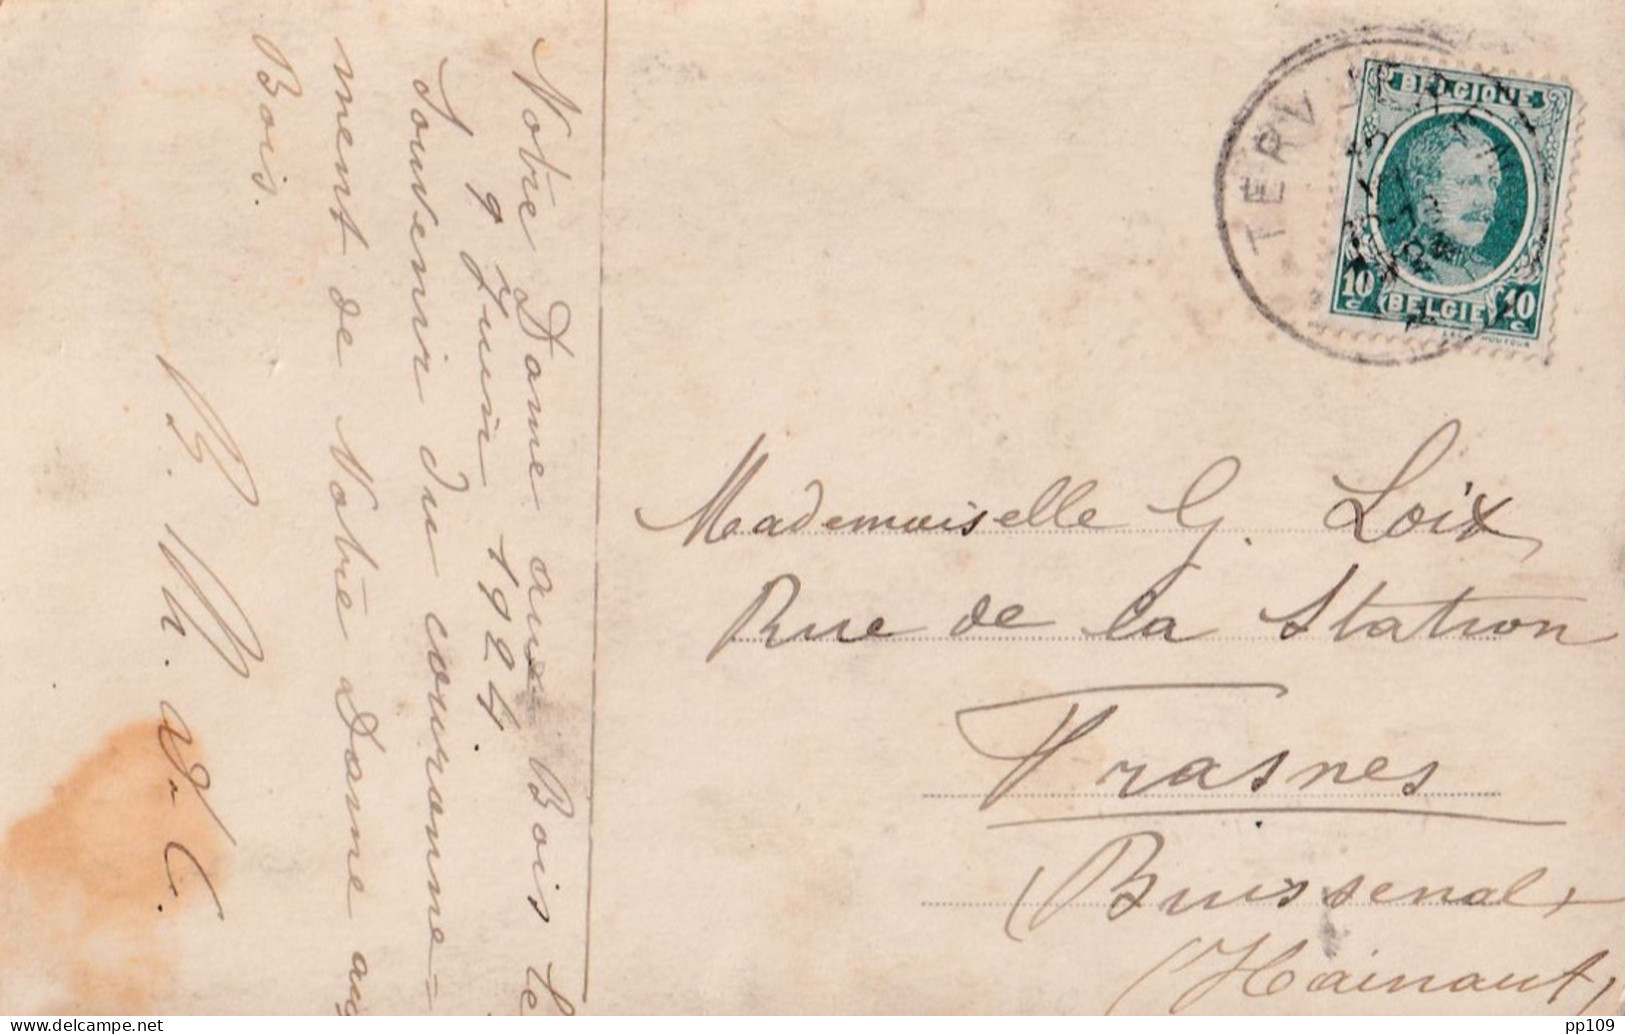 Notre Dame aux Bois le
9 Juin 1924.
Souvenir du couronne=
ment de Notre Dame aux
Bois.
B. M. v. C.
BELGIQUE
10 c BELGIE 10 c
TERV
Mademoiselle G. Loix
Rue de la Station
Frasnes
(Buissenal)
(Hainaut)
pp109